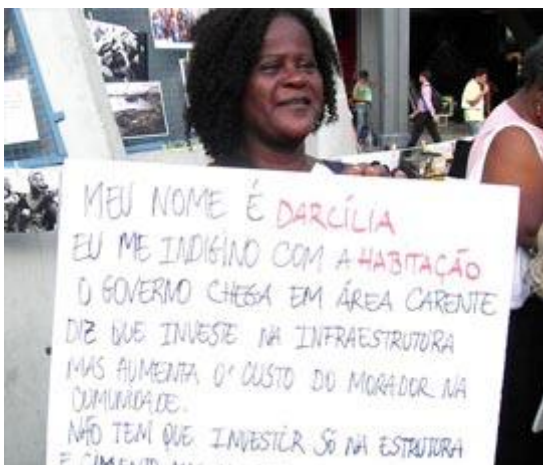 MEU NOME É DARCÍLIA
EU ME INDIGINO COM A HABITAÇÃO
O GOVERNO CHEGA EM ÁREA CARENTE
DIZ QUE INVESTE NA INFRAESTRUTURA
MAS AUMENTA O CUSTO DO MORADOR NA
COMUNIDADE.
NÃO TEM QUE INVESTIR SÓ NA ESTRUTURA
E CIMENTO